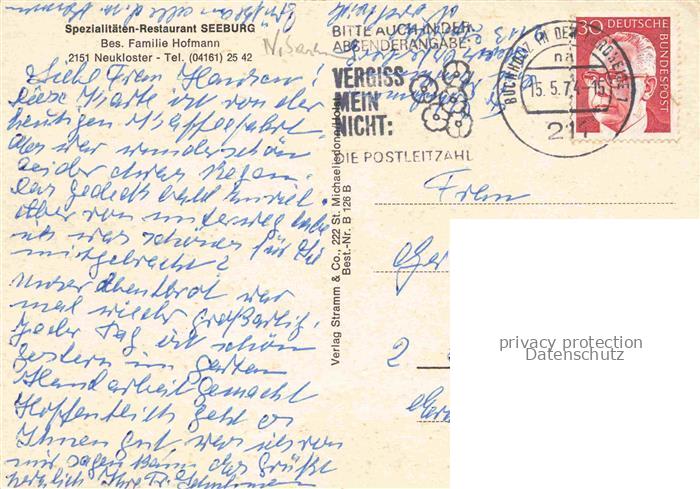 Spezialitäten-Restaurant SEEBURG
Bes. Familie Hofmann
2151 Neukloster - Tel. (04161) 25 42
Liebe Frau Hansen!
diese Karte ist von der
heutigen Kaffeefahrt,
das war wunderschön
leider etwas Regen.
das Gedeck bald zuviel.
Aber von unterwegs habe
ich was schönes für Sie
mitgebracht?
Unser Abentbrot war
mal wieder großartig.
Jeder Tag ist schön
gestern im Garten
Handarbeit gemacht
Hoffentlich geht es
Ihnen gut, was ich von
mir sagen kann, das Grüßt
herzlich Ihre Fr.
Verlag Stramm & Co., 222 St. Michaelisdonn/Holst.
Best.-Nr. B 126 B
BITTE AUCH IN DER
ABSENDERANGABE:
VERGISS
MEIN
NICHT:
DIE POSTLEITZAHL
BUCHHOLZ IN DER NORDHEIDE 1
na
15.5.74-15
211
30 DEUTSCHE
BUNDESPOST
Frau
2
privacy protection
Datenschutz